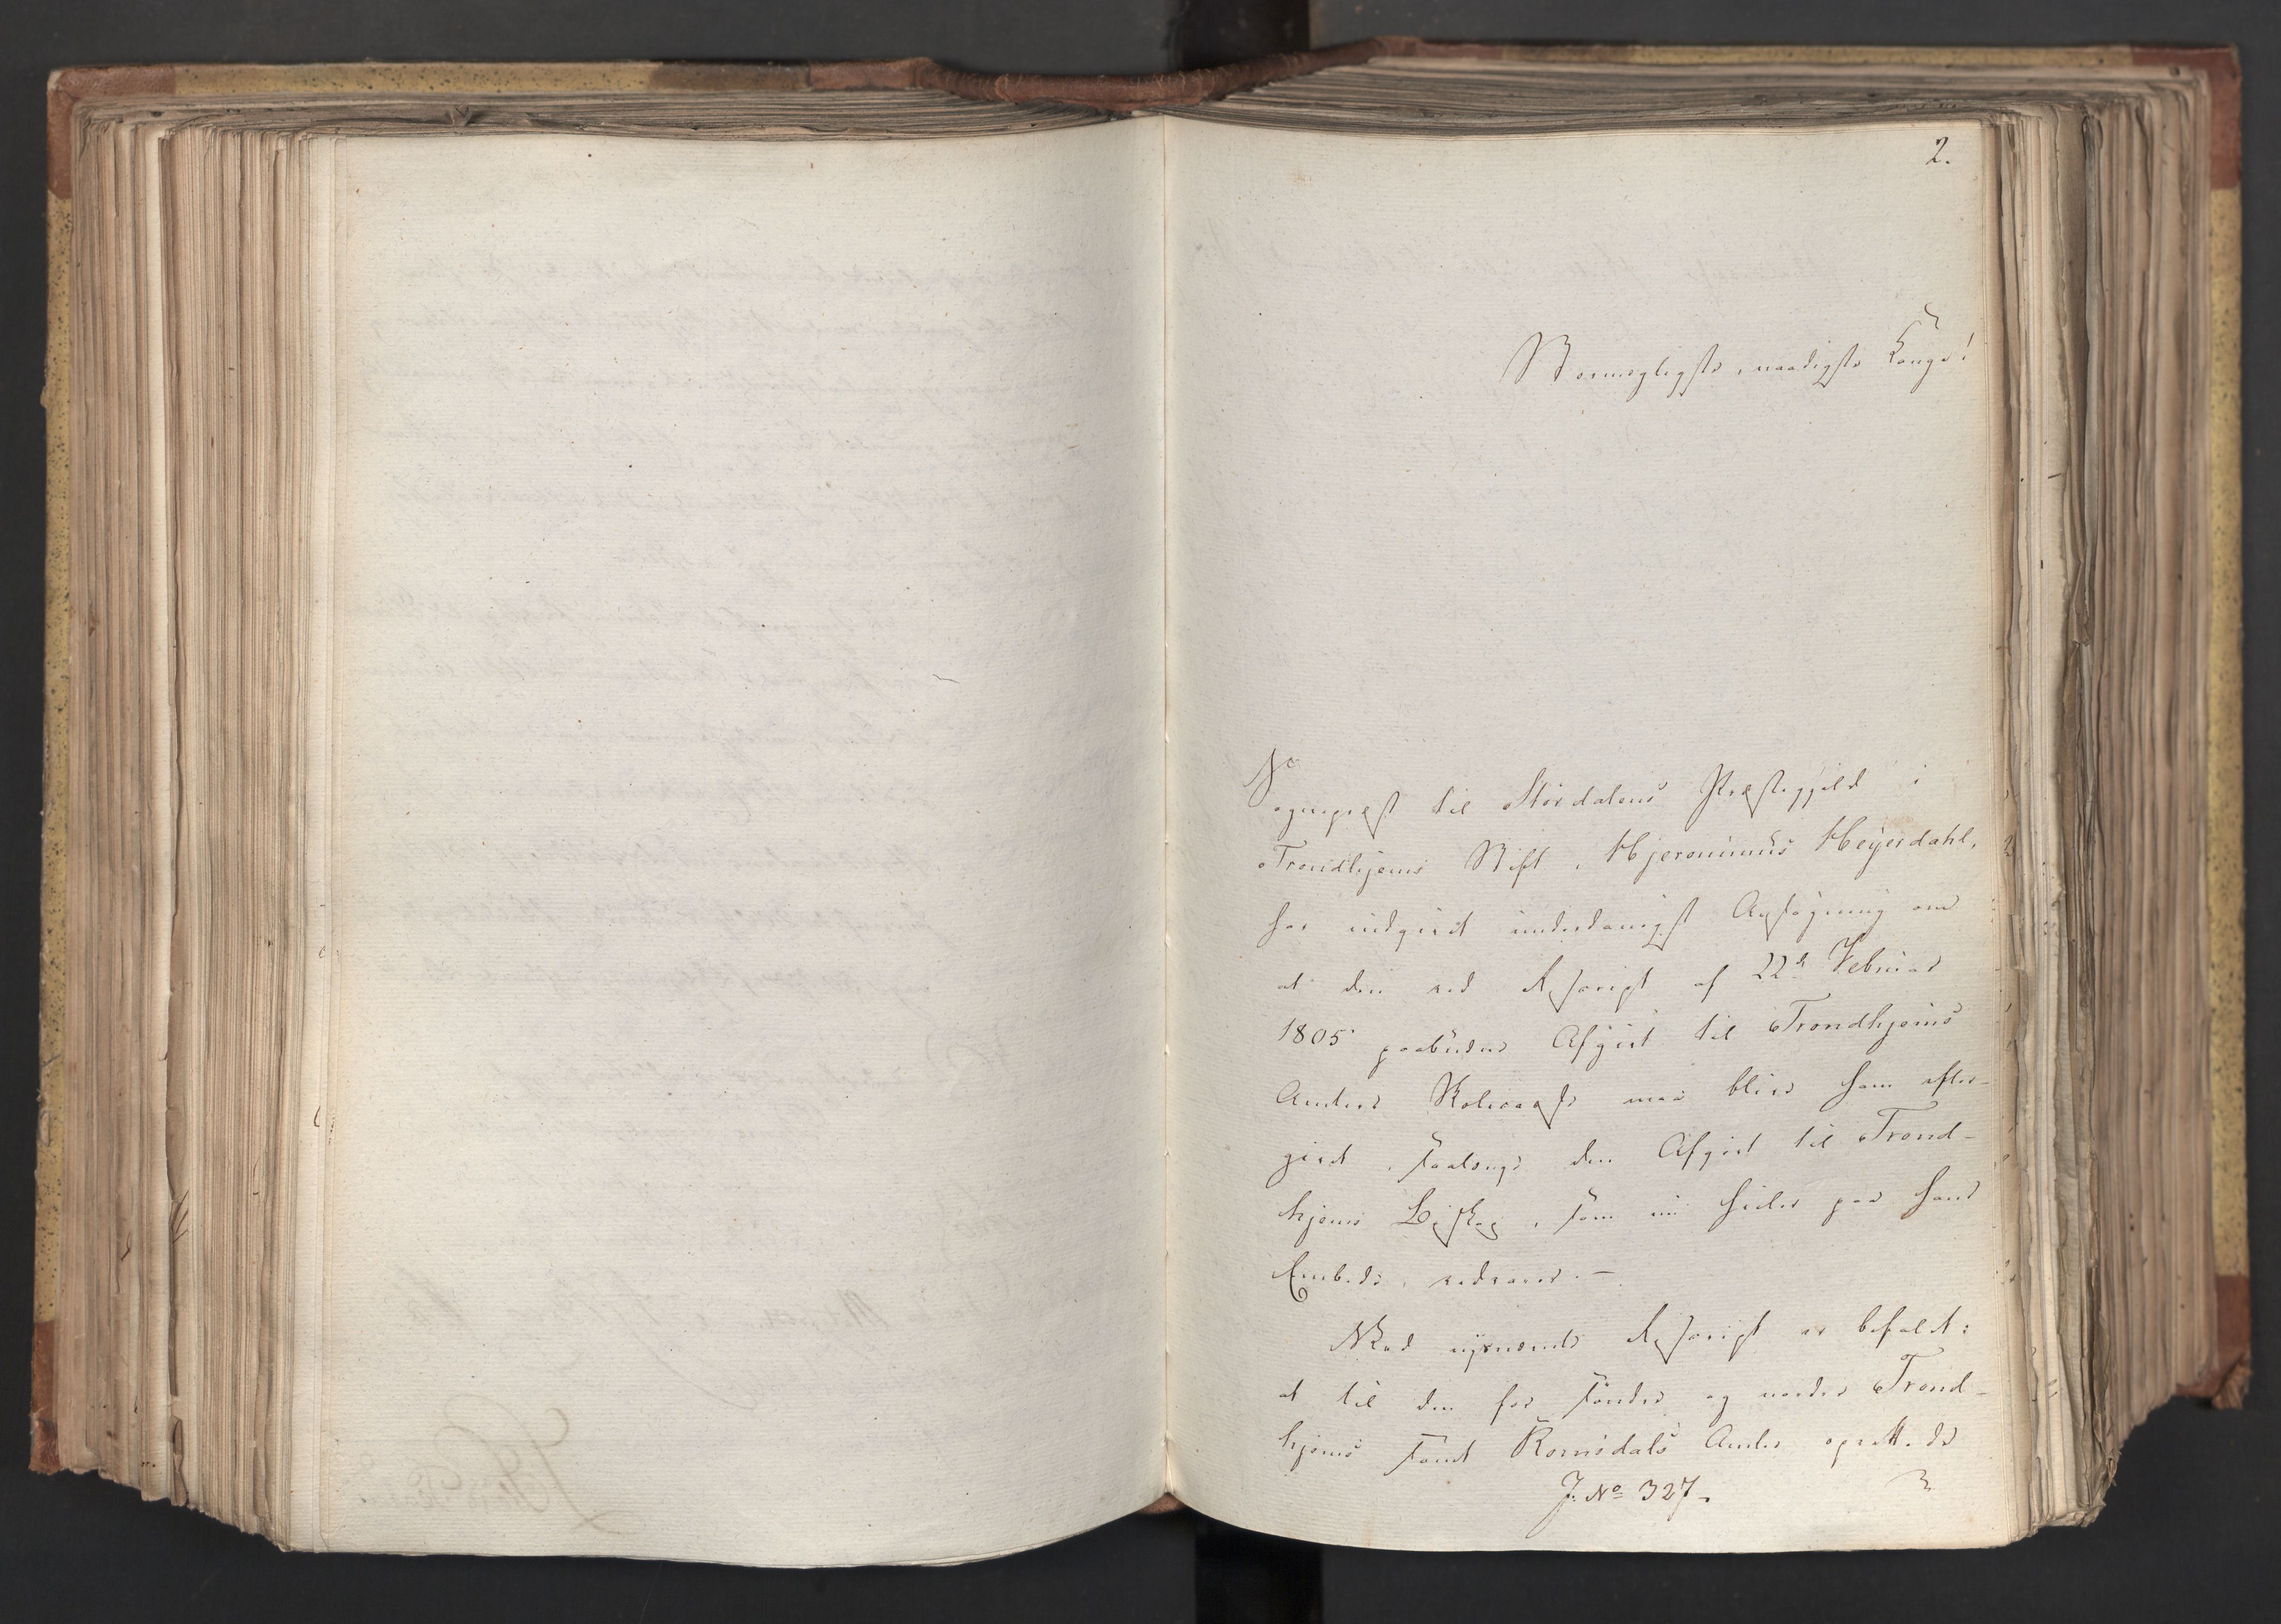 2.
Stormægtigste, naadigste Konge!
Sognepræst til Størdalens Præstegjeld i
Trondhjems Stift, Hjeronimus Heyerdahl,
har indgivet underdanigst Ansøgning om
at den ved Rescript af 22de Februar
1805 paabudne Afgivt til Trondhjems
Amters Skolecasse maa blive ham efter-
givet, saalænge den Afgivt til Trond-
hjems Bispe, som nu hviler paa hans
Embede, vedvarer. –
Ved nysnævnte Rescript er befalet:
at til den for søndre og nordre Trond-
hjems samt Romsdals Amter oprettede
J. No 327.